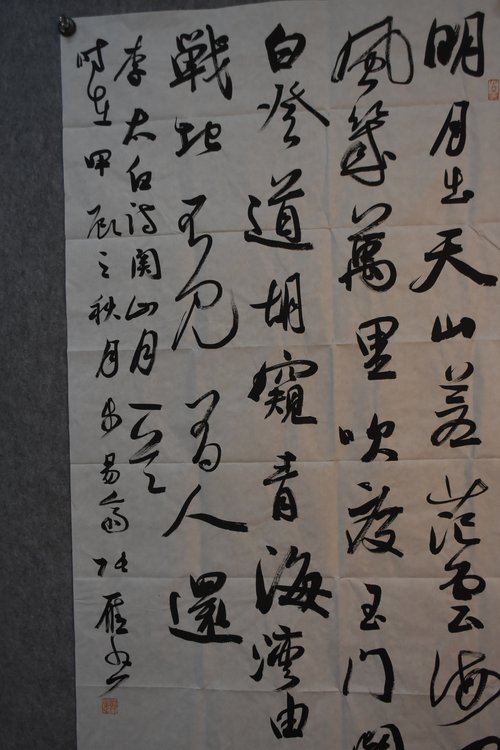 明月出天山蒼茫雲海
風幾萬里吹度玉門關
白登道胡窺青海灣由
戰地不見有人還
李太白詩關山月一首
时在甲辰之秋月易齋雁书